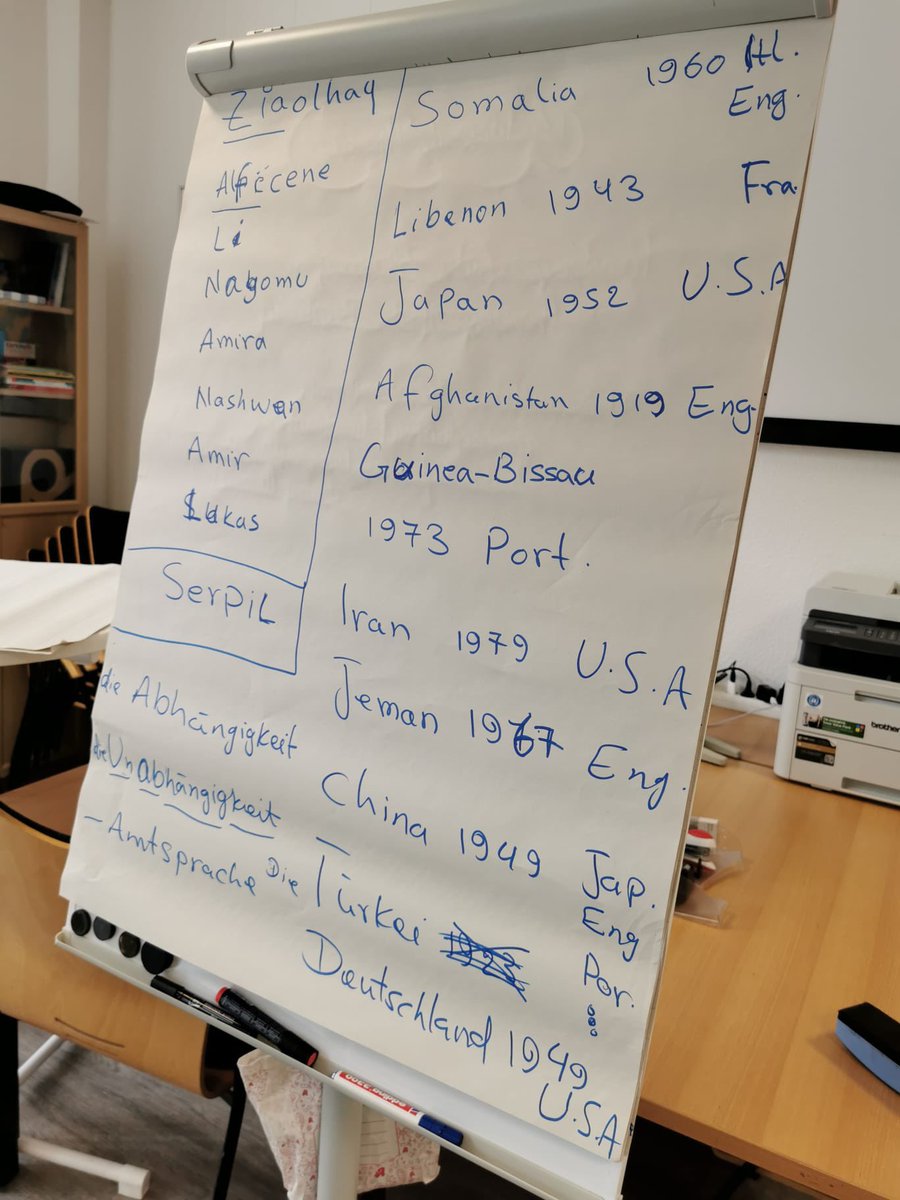 Ziaolhaq
Alfécene
Li
Nagomu
Amira
Nashwan
Amir
Lukas
SerpiL
die Abhängigkeit
die Unabhängigkeit
- Amtsprache
Somalia 1960 Itl.
Eng.
Libenon 1943 Fra.
Japan 1952 U.S.A
Afghanistan 1919 Eng.
Guinea-Bissau
1973 Port.
Iran 1979 U.S.A
Jeman 1967 Eng.
China 1949 Jap.
Eng
Por.
Die Türkei 1923
Deutschland 1949
U.S.A
brother